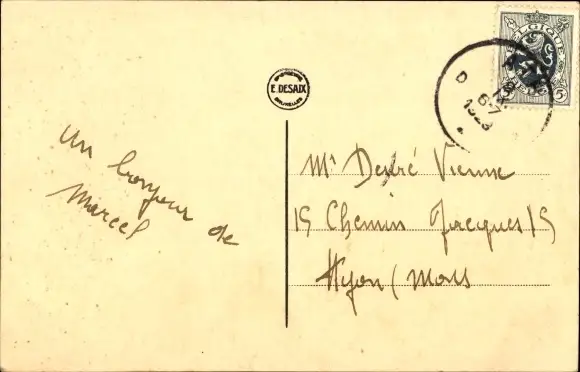 un bonjour de
Marcel
E. DESAIX
BRUXELLES
BELGIQUE
D
6-7
1929
Mr Desiré Vienne
15 Chemin Jacques 15
Hyon (Mons